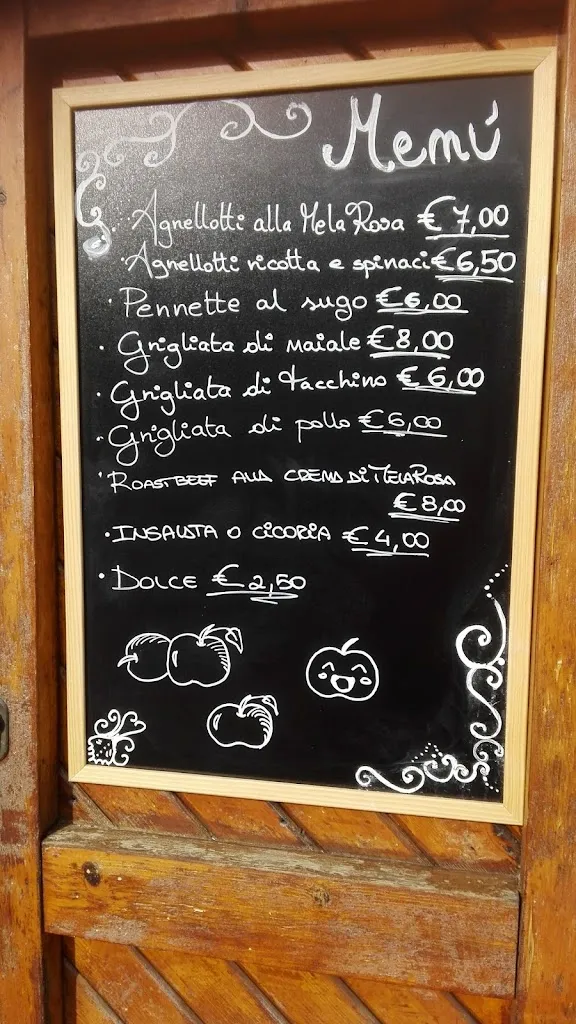 Menú
· Agnellotti alla Mela Rosa € 7,00
· Agnellotti ricotta e spinaci € 6,50
· Pennette al sugo € 6,00
· Grigliata di maiale € 8,00
· Grigliata di tacchino € 6,00
· Grigliata di pollo € 6,00
· ROASTBEEF ALLA CREMA DI MELA ROSA
€ 8,00
· INSALATA O CICORIA € 4,00
· DOLCE € 2,50